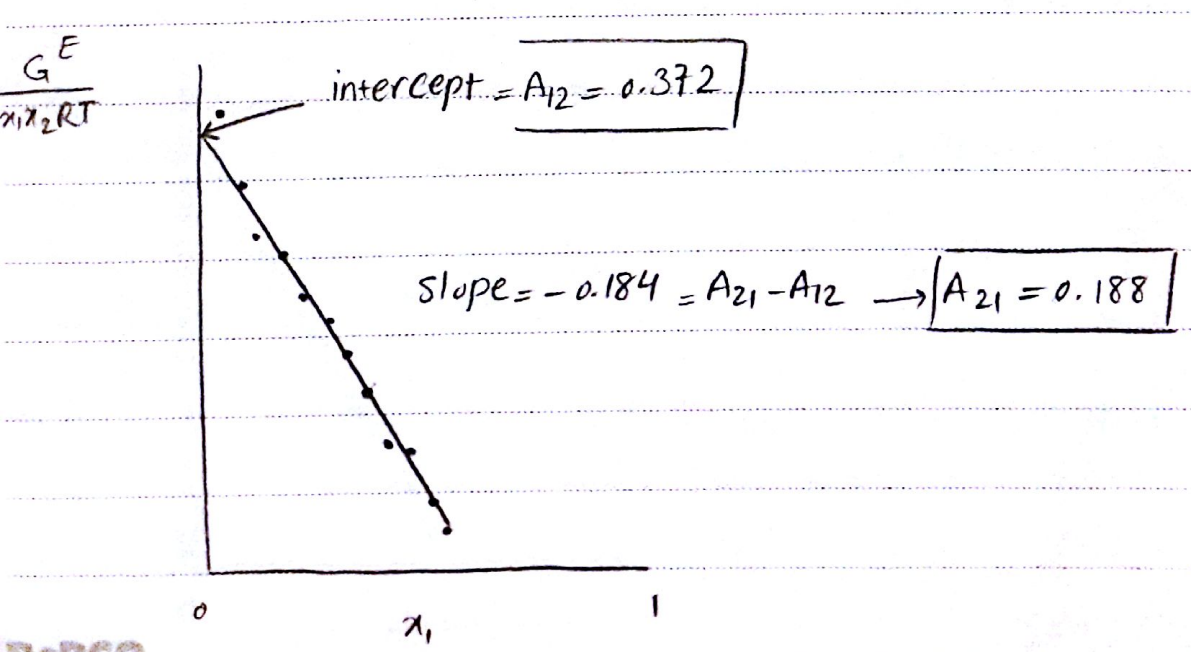 G^E
x₁x₂RT
intercept = A₁₂ = 0.372
slope = - 0.184 = A₂₁ - A₁₂ → A₂₁ = 0.188
0
1
x₁